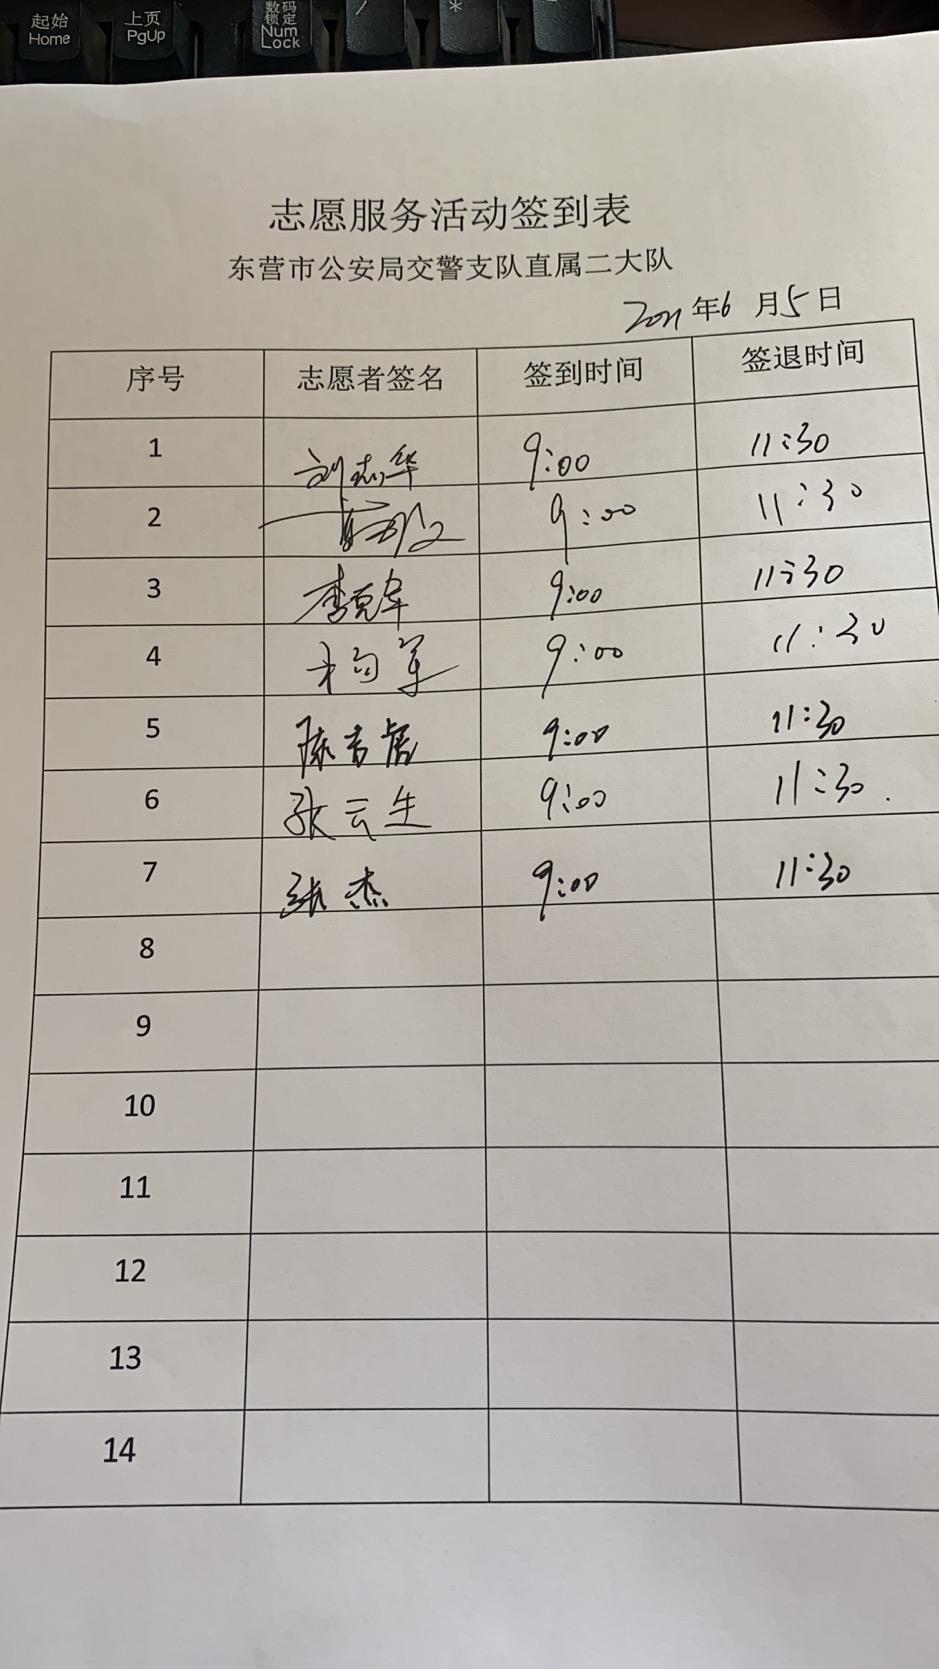 起始 上页 数码
Home PgUp 锁定
Num
Lock
/ *
志愿服务活动签到表
东营市公安局交警支队直属二大队
2021年6月5日
序号 志愿者签名 签到时间 签退时间
1 刘志华 9:00 11:30
2 9:00 11:30
3 李克军 9:00 11:30
4 9:00 11:30
5 陈吉 9:00 11:30
6 张云生 9:00 11:30
7 张杰 9:00 11:30
8
9
10
11
12
13
14